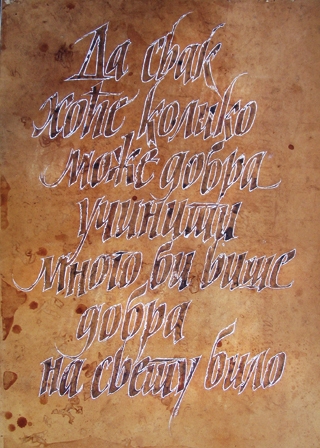 Да свак
хоће колико
може добра
учинити
много би више
добра
на свету било